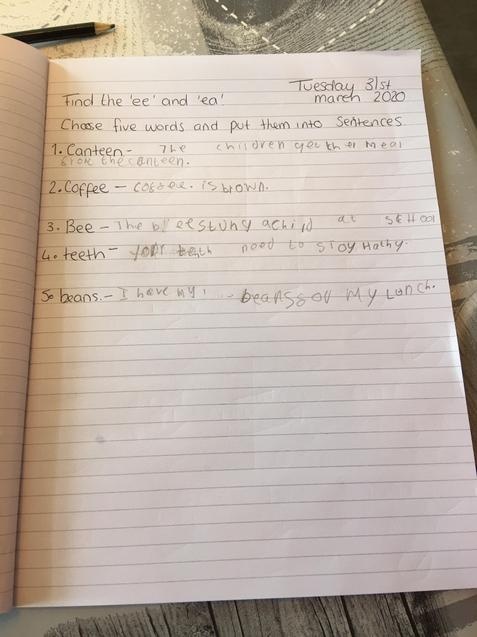 Tuesday 31st
Find the 'ee' and 'ea'. march 2020
Choose five words and put them into sentences.
1. Canteen - The children get ther meal
from the canteen.
2. Coffee - coffee. is brown.
3. Bee - The bee stung a child at school
4. teeth - your teeth need to stay Hathy.
5. beans. - I have my beans for my Lunch.